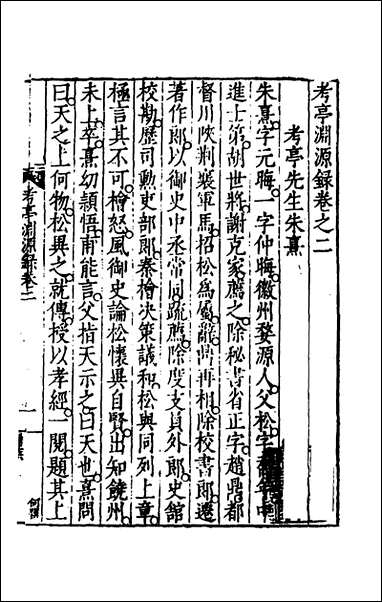 考亭淵源録卷之二
考亭先生朱熹
朱熹字元晦一字仲晦徽州婺源人父松字年中
進士第胡世將謝克家薦之除秘書省正字趙鼎都
督川陝荆襄軍馬招松為屬辭鼎再相除校書郎遷
著作郎以御史中丞常同疏薦除度支員外郎史館
校勘歷司勲吏部郎秦檜决策議和松與同列上章
極言其不可檜怒風御史論松懷異自賢出知饒州
未上卒熹幼頴悟甫能言父指天示之曰天也熹問
曰天之上何物松異之就傅授以孝經一閱題其上
考亭淵源録卷二
一